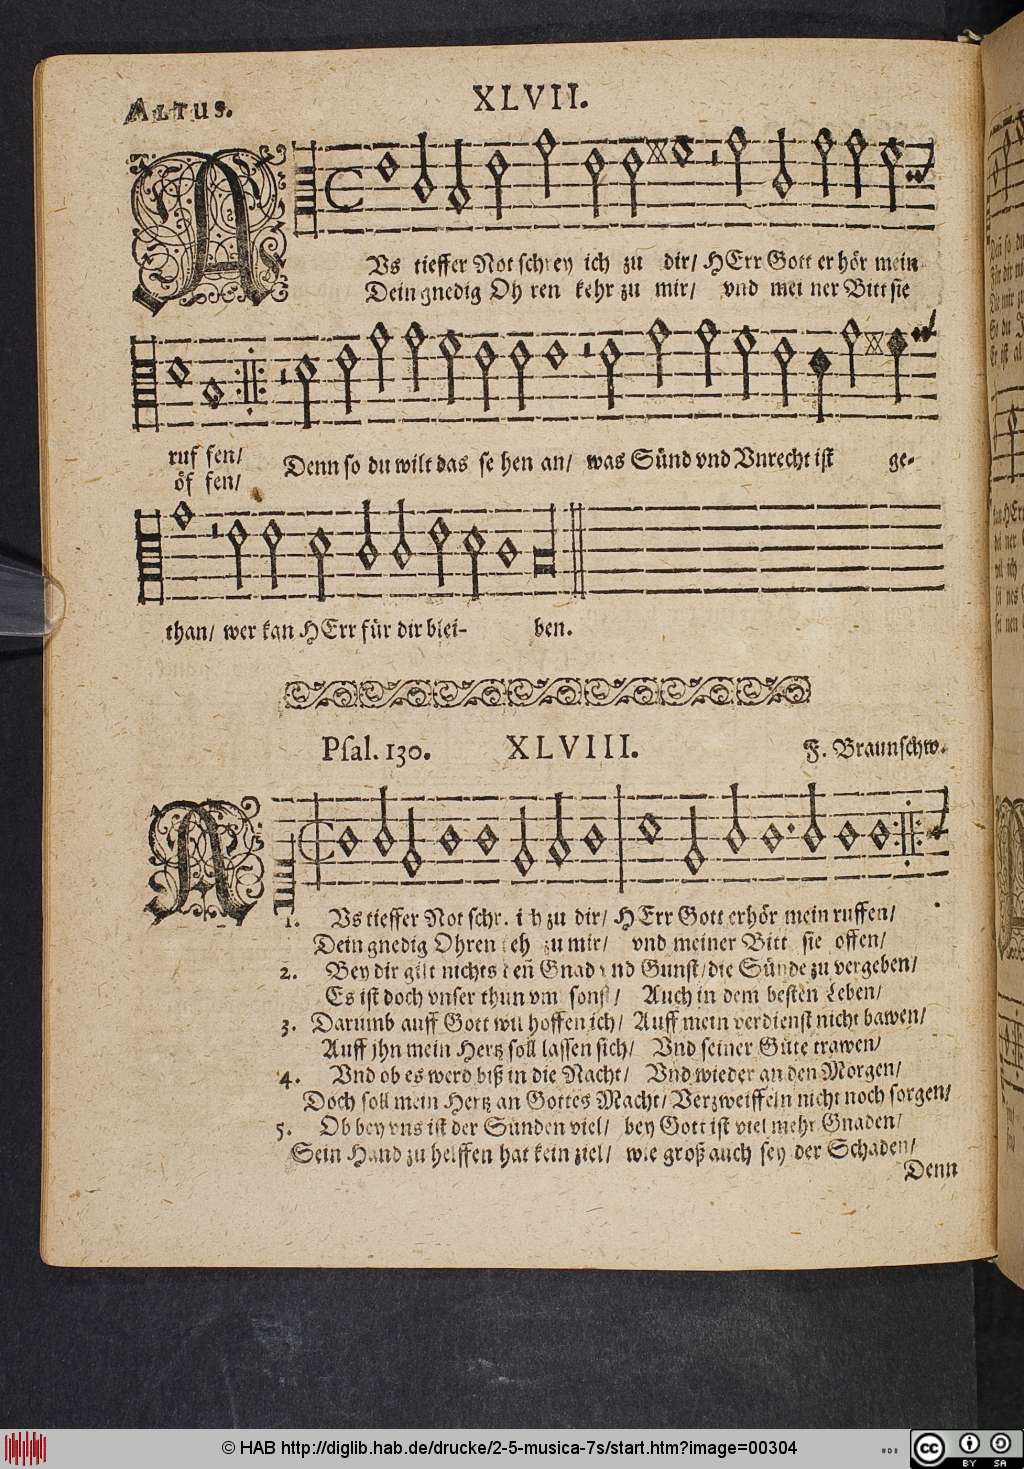 ALTUS.
XLVII.
AVs tieffer Not schrey ich zu dir/ HErr Gott er hör mein
Dein gnedig Oh ren kehr zu mir/ vnd mei ner Bitt sie
ruf fen/
öf fen/
Denn so du wilt das se hen an/ was Sünd vnd Vnrecht ist ge-
than/ wer kan HErr für dir blei- ben.
Psal. 130. XLVIII. F. Braunschw.
1. AVs tieffer Not schr. ich zu dir/ HErr Gott erhör mein ruffen/
Dein gnedig Ohren keh zu mir/ vnd meiner Bitt sie offen/
2. Bey dir gilt nichts denn Gnad vnd Gunst/ die Sünde zu vergeben/
Es ist doch vnser thun vm sonst/ Auch in dem besten Leben/
3. Darumb auff Gott wil hoffen ich/ Auff mein verdienst nicht bawen/
Auff jhn mein Hertz soll lassen sich/ Vnd seiner Güte trawen/
4. Vnd ob es werd biß in die Nacht/ Vnd wieder an den Morgen/
Doch soll mein Hertz an Gottes Macht/ Verzweiffeln nicht noch sorgen/
5. Ob bey vns ist der Sünden viel/ bey Gott ist viel mehr Gnaden/
Sein Hand zu helffen hat kein ziel/ wie groß auch sey der Schaden/
Denn
© HAB http://diglib.hab.de/drucke/2-5-musica-7s/start.htm?image=00304
cc BY SA